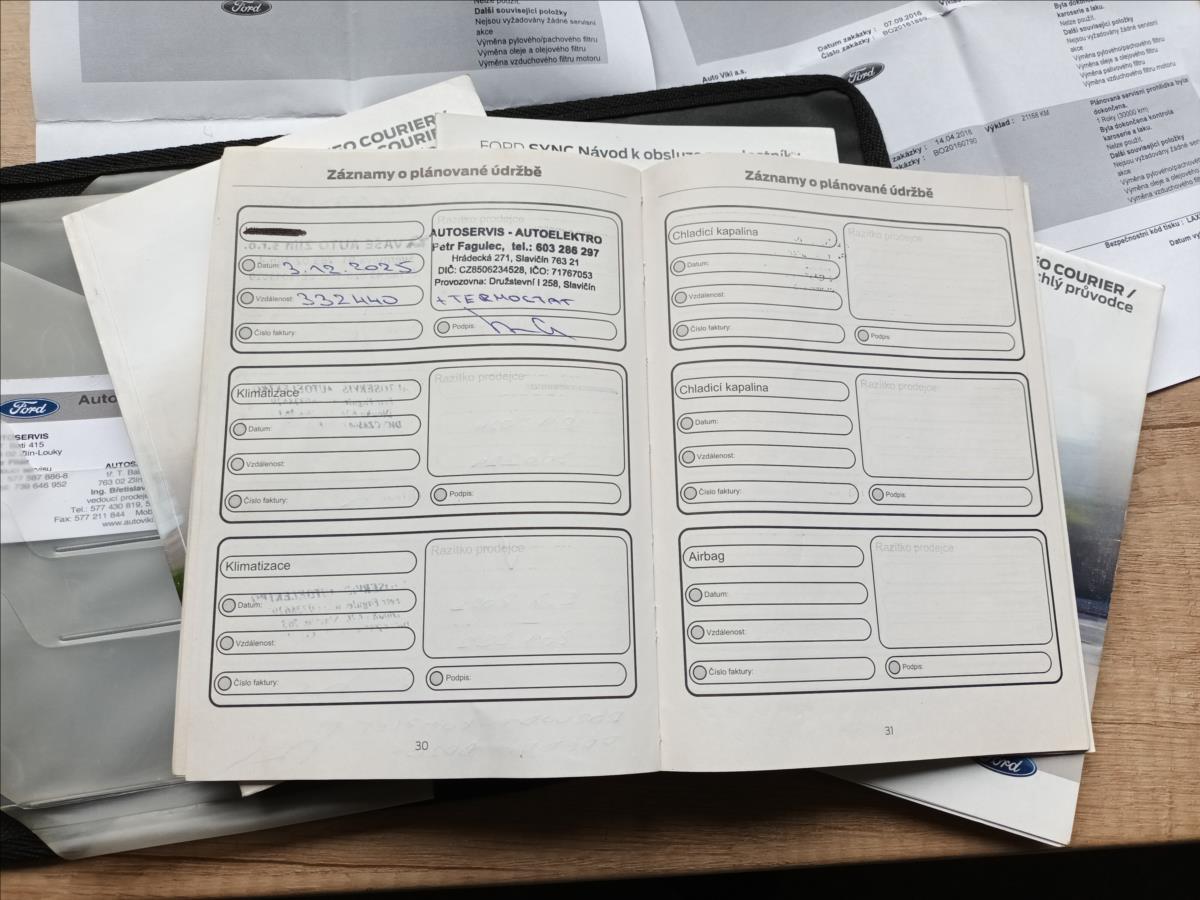 Ford
Nelze použít.
Další související položky
Nejsou vyžadovány žádné servisní
akce
Výměna pylového/pachového filtru
Výměna oleje a olejového filtru
Výměna vzduchového filtru motoru
Datum zakázky : 07.09.2016
Číslo zakázky :
Auto Viki a.s.
Ford
Byla dokončena
karoserie a laku.
Nelze použít.
Další související položky
Nejsou vyžadovány žádné servisní
akce
Výměna pylového/pachového filtru
Výměna oleje a olejového filtru
Výměna palivového filtru
Výměna vzduchového filtru motoru
zakázky : 14.04.2016
zakázky : BO20160790
Výklad : 21158 KM
Plánovaná servisní prohlídka byla
dokončena.
1 Roky (30000 km)
Byla dokončena kontrola
karoserie a laku.
Další související položky
Nejsou vyžadovány žádné
akce
Výměna pylového/pachového
Výměna oleje a olejového
Výměna
Bezpečnostní kód tisku : LAX
Datum
COURIER
FORD SYNC Návod k obsluze
O COURIER /
chlý průvodce
Záznamy o plánované údržbě
Datum: 3.12.2025
Vzdálenost: 332440
Číslo faktury:
Razítko prodejce
AUTOSERVIS - AUTOELEKTRO
Petr Fagulec, tel.: 603 286 297
Hrádecká 271, Slavičín 763 21
DIČ: CZ8506234528, IČO: 71767053
Provozovna: Družstevní I 258, Slavičín
+ TERMOSTAT
Podpis:
Klimatizace
Datum:
Vzdálenost:
Číslo faktury:
Razítko prodejce
Podpis:
Klimatizace
Datum:
Vzdálenost:
Číslo faktury:
Razítko prodejce
Podpis:
30
Záznamy o plánované údržbě
Chladicí kapalina
Datum:
Vzdálenost:
Číslo faktury:
Razítko prodejce
Podpis:
Chladicí kapalina
Datum:
Vzdálenost:
Číslo faktury:
Razítko prodejce
Podpis:
Airbag
Datum:
Vzdálenost:
Číslo faktury:
Razítko prodejce
Podpis:
31
Ford
Auto
415
Zlín-Louky
AUTOS
tř. T. Ba
763 02 Zlín
Ing. Břetislav
vedoucí prodeje
Tel.: 577 430 819, 5
Fax: 577 211 844 Mob
www.autoviki